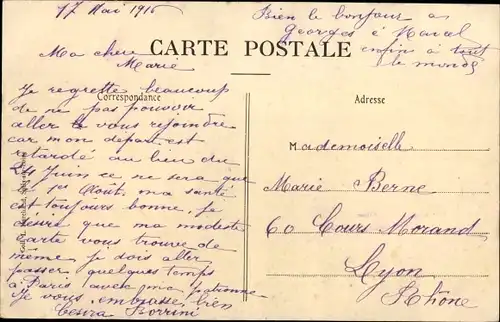 17 Mai 1916
Bien le bonjour a
Georges é Marcel
enfin à tout
le monde
Ma chere
Marie
CARTE POSTALE
Correspondance
Je regrette beaucoup
de ne pas pouvoir
aller vous rejoindre
car mon depart est
retardé au lieu du
Juin ce ne sera que
le 1er Août, ma santé
est toujours bonne, je
désire que ma modeste
carte vous trouve de
même je dois aller
passer quelques temps
à Paris avec ma patronne
Je vous embrasse bien
Borrini
Adresse
Mademoiselle
Marie Berne
60 Cours Morand
Lyon
Rhône